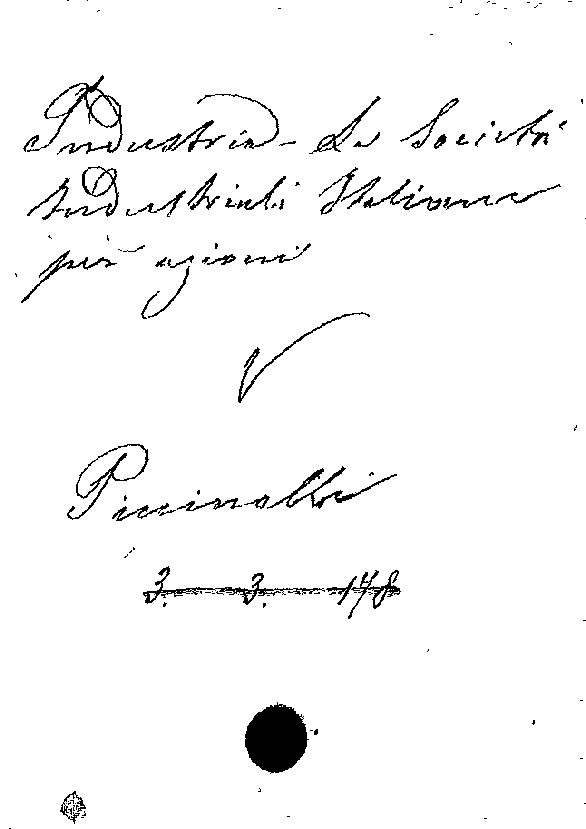 Industria - Le Società
Industriali Italiane
per azioni
V
Piccinelli
3. 3. 148